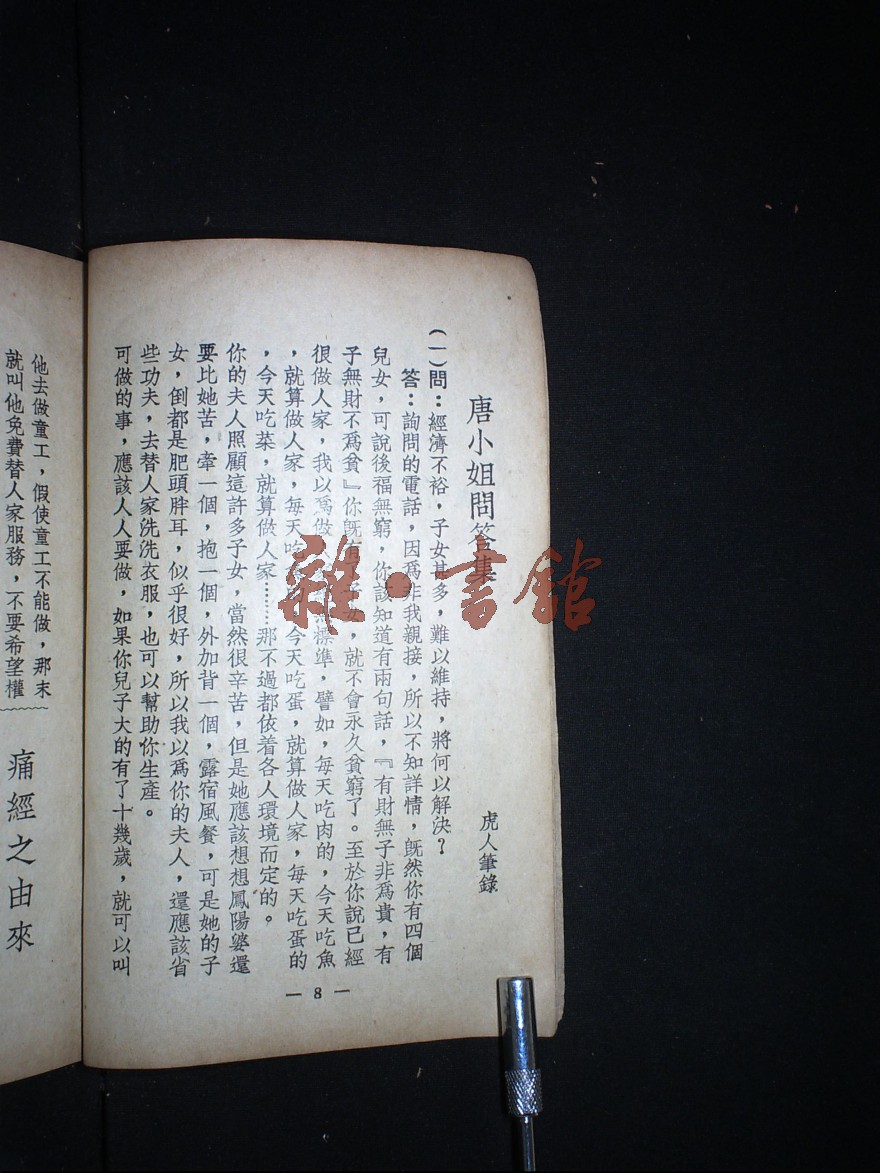 唐小姐問答集
虎人筆錄
(一)問：經濟不裕，子女甚多，難以維持，將何以解決？
答：詢問的電話，因爲非我親接，所以不知詳情，旣然你有四個
兒女，可說後福無窮，你該知道有兩句話，『有財無子非爲貴，有
子無財不爲貧』你旣有子女，就不會永久貧窮了。至於你說已經
很做人家，我以爲做標準，譬如，每天吃肉的，今天吃魚
，就算做人家，每天吃今天吃蛋，就算做人家，每天吃蛋的
，今天吃菜，就算做人家……那不過都依着各人環境而定的。
你的夫人照顧這許多子女，當然很辛苦，但是她應該想想鳳陽婆還
要比她苦，牽一個，抱一個，外加背一個，露宿風餐，可是她的子
女，倒都是肥頭胖耳，似乎很好，所以我以爲你的夫人，還應該省
些功夫，去替人家洗洗衣服，也可以幫助你生產。
可做的事，應該人人要做，如果你兒子大的有了十幾歲，就可以叫
— 8 —
他去做童工，假使童工不能做，那末
就叫他免費替人家服務，不要希望權
痛經之由來
雜·書館